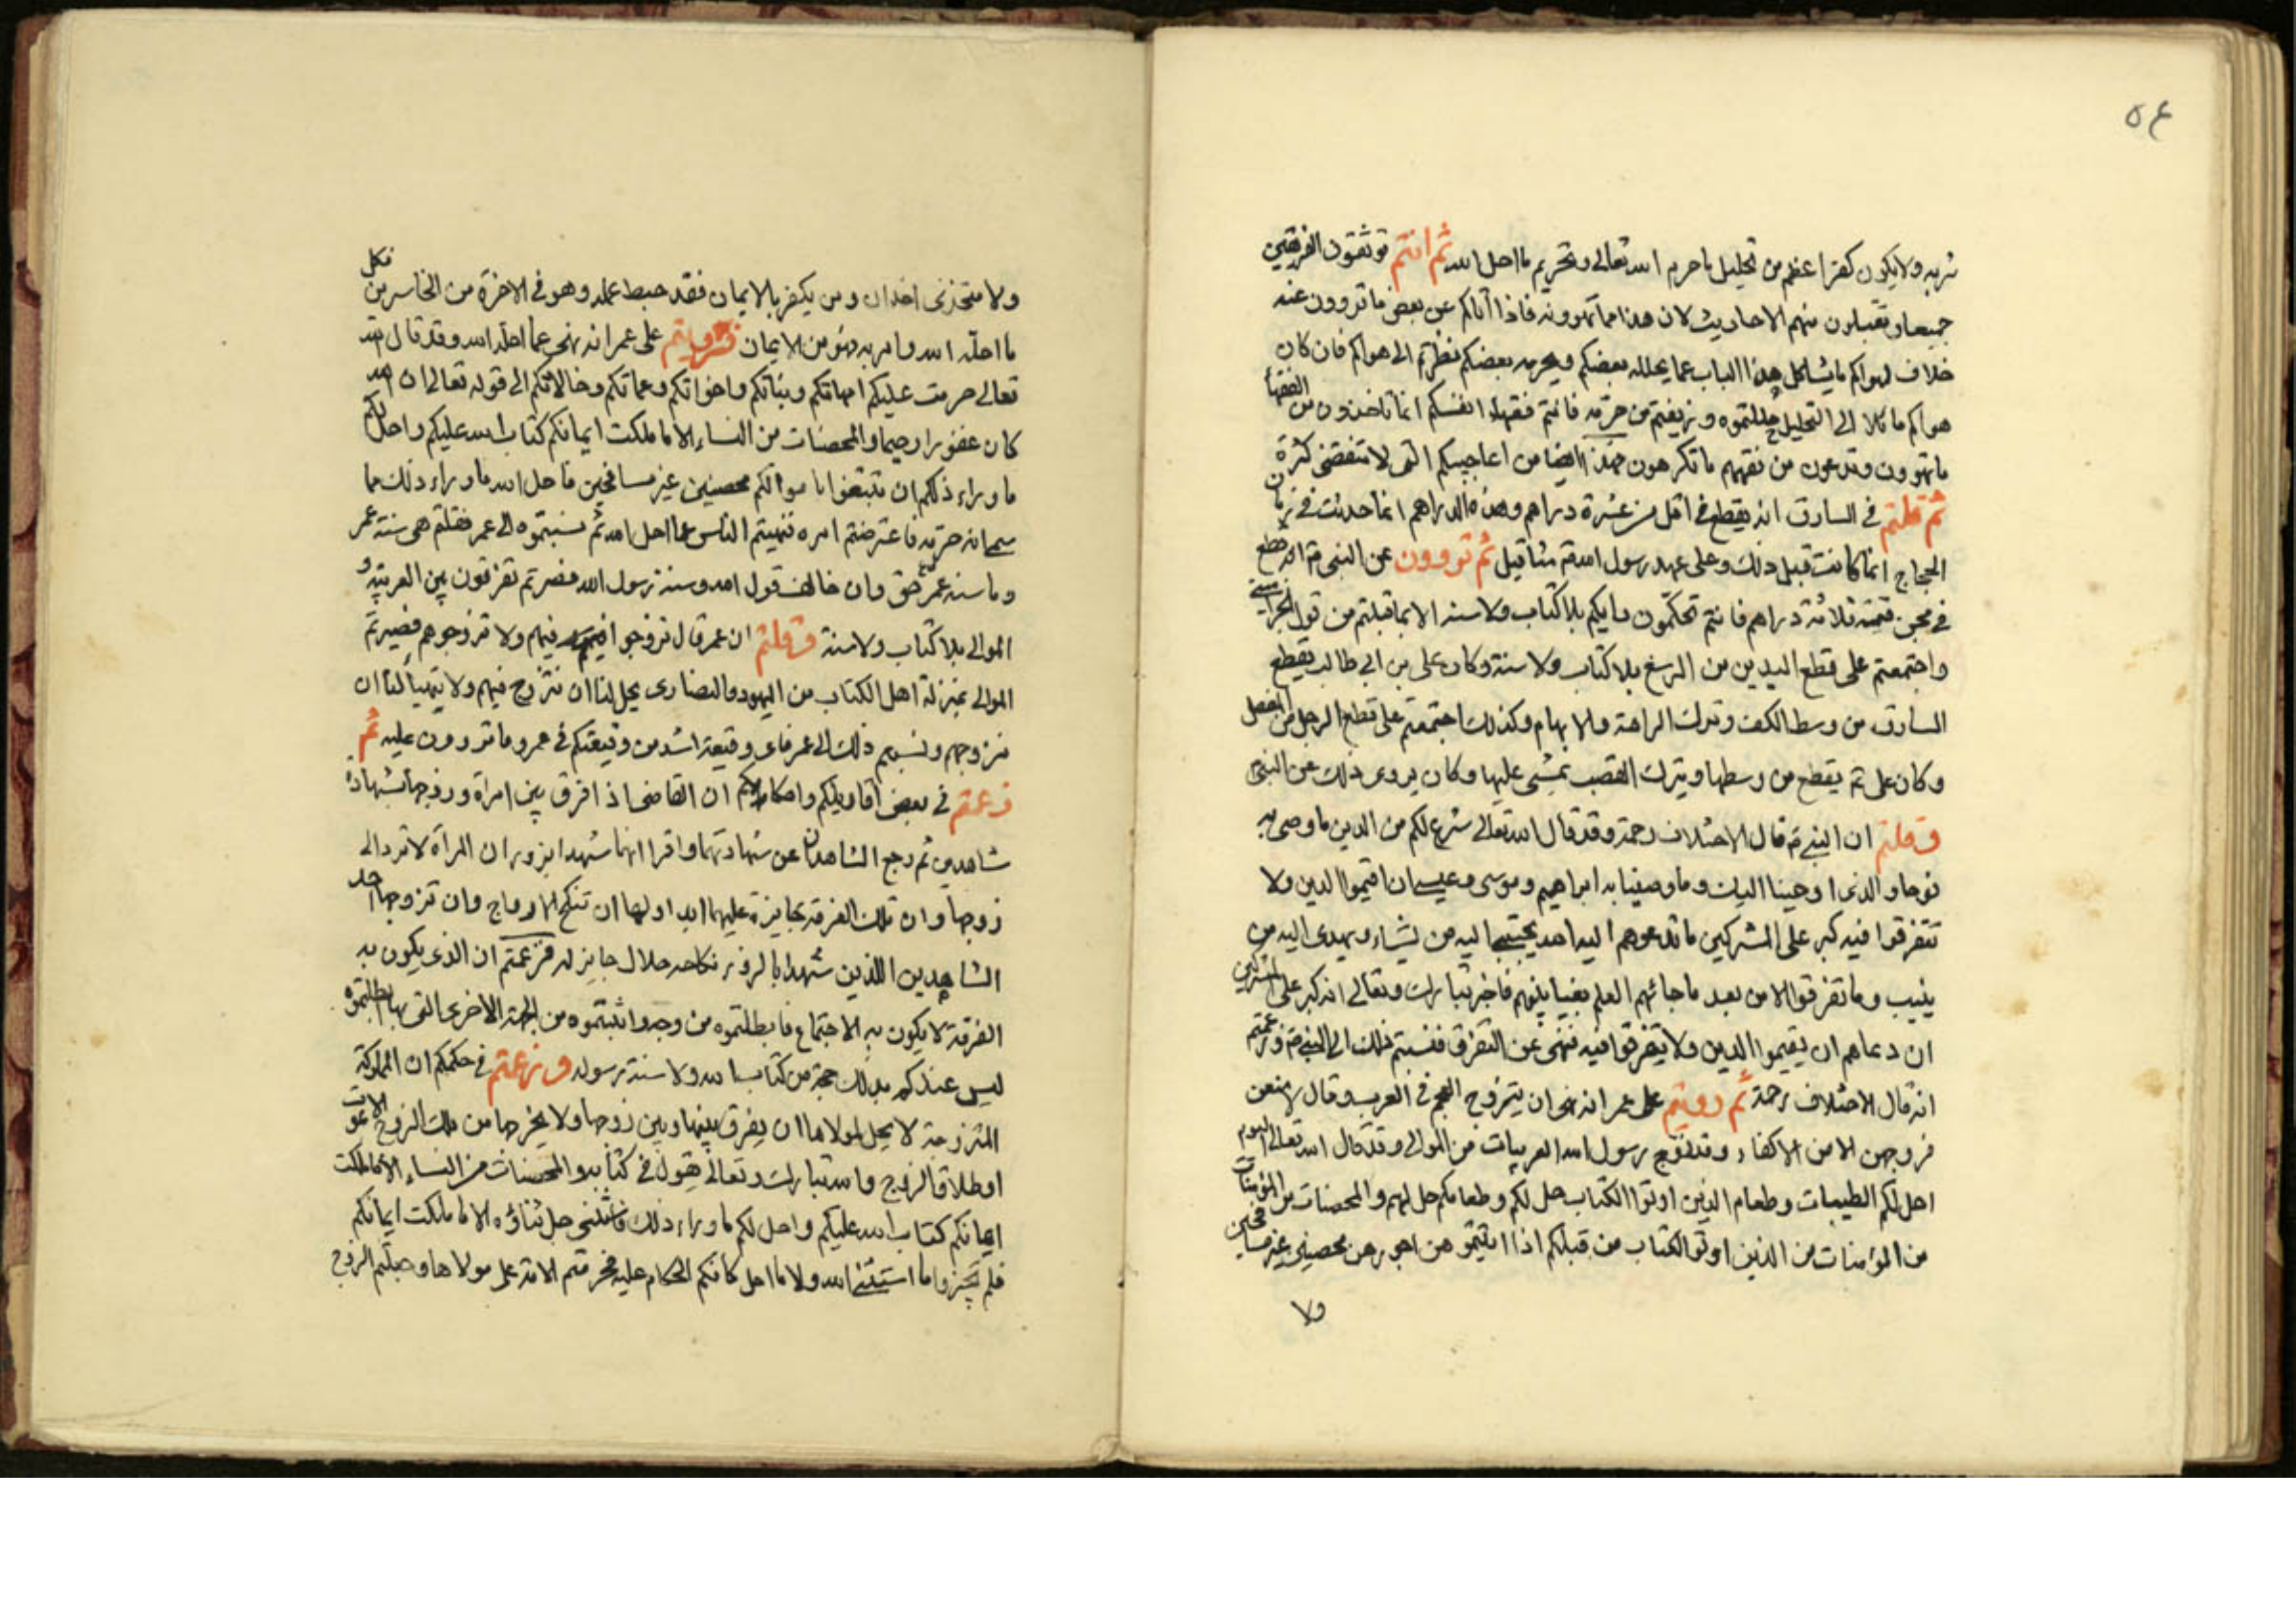 ٥٤
شربه ولا يكون كفرا اعظم من تحليل ما حرم الله تعالى وتحريم ما احل الله ثم انتم توثقون الفريقين
جميعا وتقبلون منهم الاحاديث لان هذا مما تهوونه فاذا اتاكم عن بعض ما تروون عنه
خلاف لهواكم ما يشاكل هذا الباب عما يحلله بعضكم ويحرمه بعضكم نظرتم الى هواكم فان كان
هواكم مائلا الى التحليل حللتموه وزيفتم من حرمه فانتم فقهاء انفسكم انما تاخذون من الفقهاء
ما تهوون وتدعون من فقههم ما تكرهون فهذا ايضا من اعاجيبكم التى لا تنقضى كثرة
ثم قلتم فى السارق انه يقطع فى اقل من عشرة دراهم وهذه الدراهم انما حدثت فى زمان
الحجاج انما كانت قبل ذلك وعلى عهد رسول الله ص مثاقيل ثم تروون عن النبى ص انه قطع
فى مجن قيمته ثلاثة دراهم فانتم تحكمون رايكم بلا كتاب ولا سنة الا بما قبلتم من قول
واجتمعتم على قطع اليدين من الرسغ بلا كتاب ولا سنة وكان على بن ابى طالب يقطع
السارق من وسط الكف وترك الراحة والابهام وكذلك اجتمعتم على قطع الرجل من المفصل
وكان على ع يقطع من وسطها ويترك العقب يمشى عليها وكان يروى ذلك عن النبى
وقلتم ان النبى ص قال الاختلاف رحمة وقد قال الله تعالى شرع لكم من الدين ما وصى به
نوحا والذى اوحينا اليك وما وصينا به ابراهيم وموسى وعيسى ان اقيموا الدين ولا
تتفرقوا فيه كبر على المشركين ما تدعوهم اليه الله يجتبى اليه من يشاء ويهدى اليه من
ينيب وما تفرقوا الا من بعد ما جائهم العلم بغيا بينهم فاخبر تبارك وتعالى انه كبر على المشركين
ان دعاهم ان يقيموا الدين ولا يتفرقوا فيه فنهى عن التفرق فنسبتم ذلك الى النبى ص وزعمتم
انه قال الاختلاف رحمة ثم رويتم على عمر انه نهى ان يتزوج العجم فى العرب وقال لامنعن
فروجهن الا من الاكفاء وقد زوج رسول الله العربيات من الموالى وقد قال الله تعالى اليوم
احل لكم الطيبات وطعام الذين اوتوا الكتاب حل لكم وطعامكم حل لهم والمحصنات من المؤمنات
من المؤمنات من الذين اوتوا الكتاب من قبلكم اذا اتيتموهن اجورهن محصنين غير مسافحين
ولا
ولا متخذى اخدان ومن يكفر بالايمان فقد حبط عمله وهو فى الاخرة من الخاسرين فكل
ما احله الله وامر به فهو من الايمان فرويتم على عمر انه نهى عما احله الله وقد قال الله
تعالى حرمت عليكم امهاتكم وبناتكم واخواتكم وعماتكم وخالاتكم الى قوله تعالى ان الله
كان غفورا رحيما والمحصنات من النساء الا ما ملكت ايمانكم كتاب الله عليكم واحل لكم
ما وراء ذلكم ان تبتغوا باموالكم محصنين غير مسافحين فاحل الله ما وراء ذلك مما
سمى انه حرمه فاعترضتم امره فنهيتم الناس عما احل الله ثم نسبتموه الى عمر فقلتم هى سنة عمر
وما سنه عمر حق وان خالف قول الله وسنة رسول الله فصرتم تفرقون بين العربية و
الموالى بلا كتاب ولا سنة وقلتم ان عمر قال تزوجوا فيهم ولا تزوجوهم فصيرتم
الموالى بمنزلة اهل الكتاب من اليهود والنصارى يحل لنا ان نتزوج فيهم ولا يتهيأ لنا ان
نزوجهم ونسبتم ذلك الى عمر فاى وقيعة اشد من وقيعتكم فى عمر وما تروون عليه ثم
زعمتم فى بعض اقاويلكم واحكامكم ان القاضى اذ افرق بين امراة وزوجها بشهادة
شاهدين ثم رجع الشاهدان عن شهادتهما واقرا انهما شهدا بزور ان المرأة لا ترد الى
زوجها وان تلك الفرقة جايزة عليهما ابدا ولها ان تنكح الازواج وان تزوجها احد
الشاهدين اللذين شهدا بالزور نكاحه حلال جايز له فزعمتم ان الذى يكون به
الفرقة لا يكون به الاجتماع فابطلتموه من وجه واثبتموه من الجهة الاخرى التى بها ابطلتموه
ليس عندكم بذلك حجة من كتاب الله ولا سنة رسوله وزعمتم فى حكمكم ان المملوكة
المتزوجة لا يحل لمولاها ان يفرق بينها وبين زوجها ولا يخرجها من ملك الزوج الا بموت
او طلاق الزوج والله تبارك وتعالى يقول فى كتابه والمحصنات من النساء الا ما ملكت
ايمانكم كتاب الله عليكم واحل لكم ما وراء ذلك فاستثنى جل ثناؤه الا ما ملكت ايمانكم
فلم تجيزوا ما استثنى الله ولا ما احل كانكم الحكام عليه فحرمتم الامة على مولاها وحبلتم الزوج